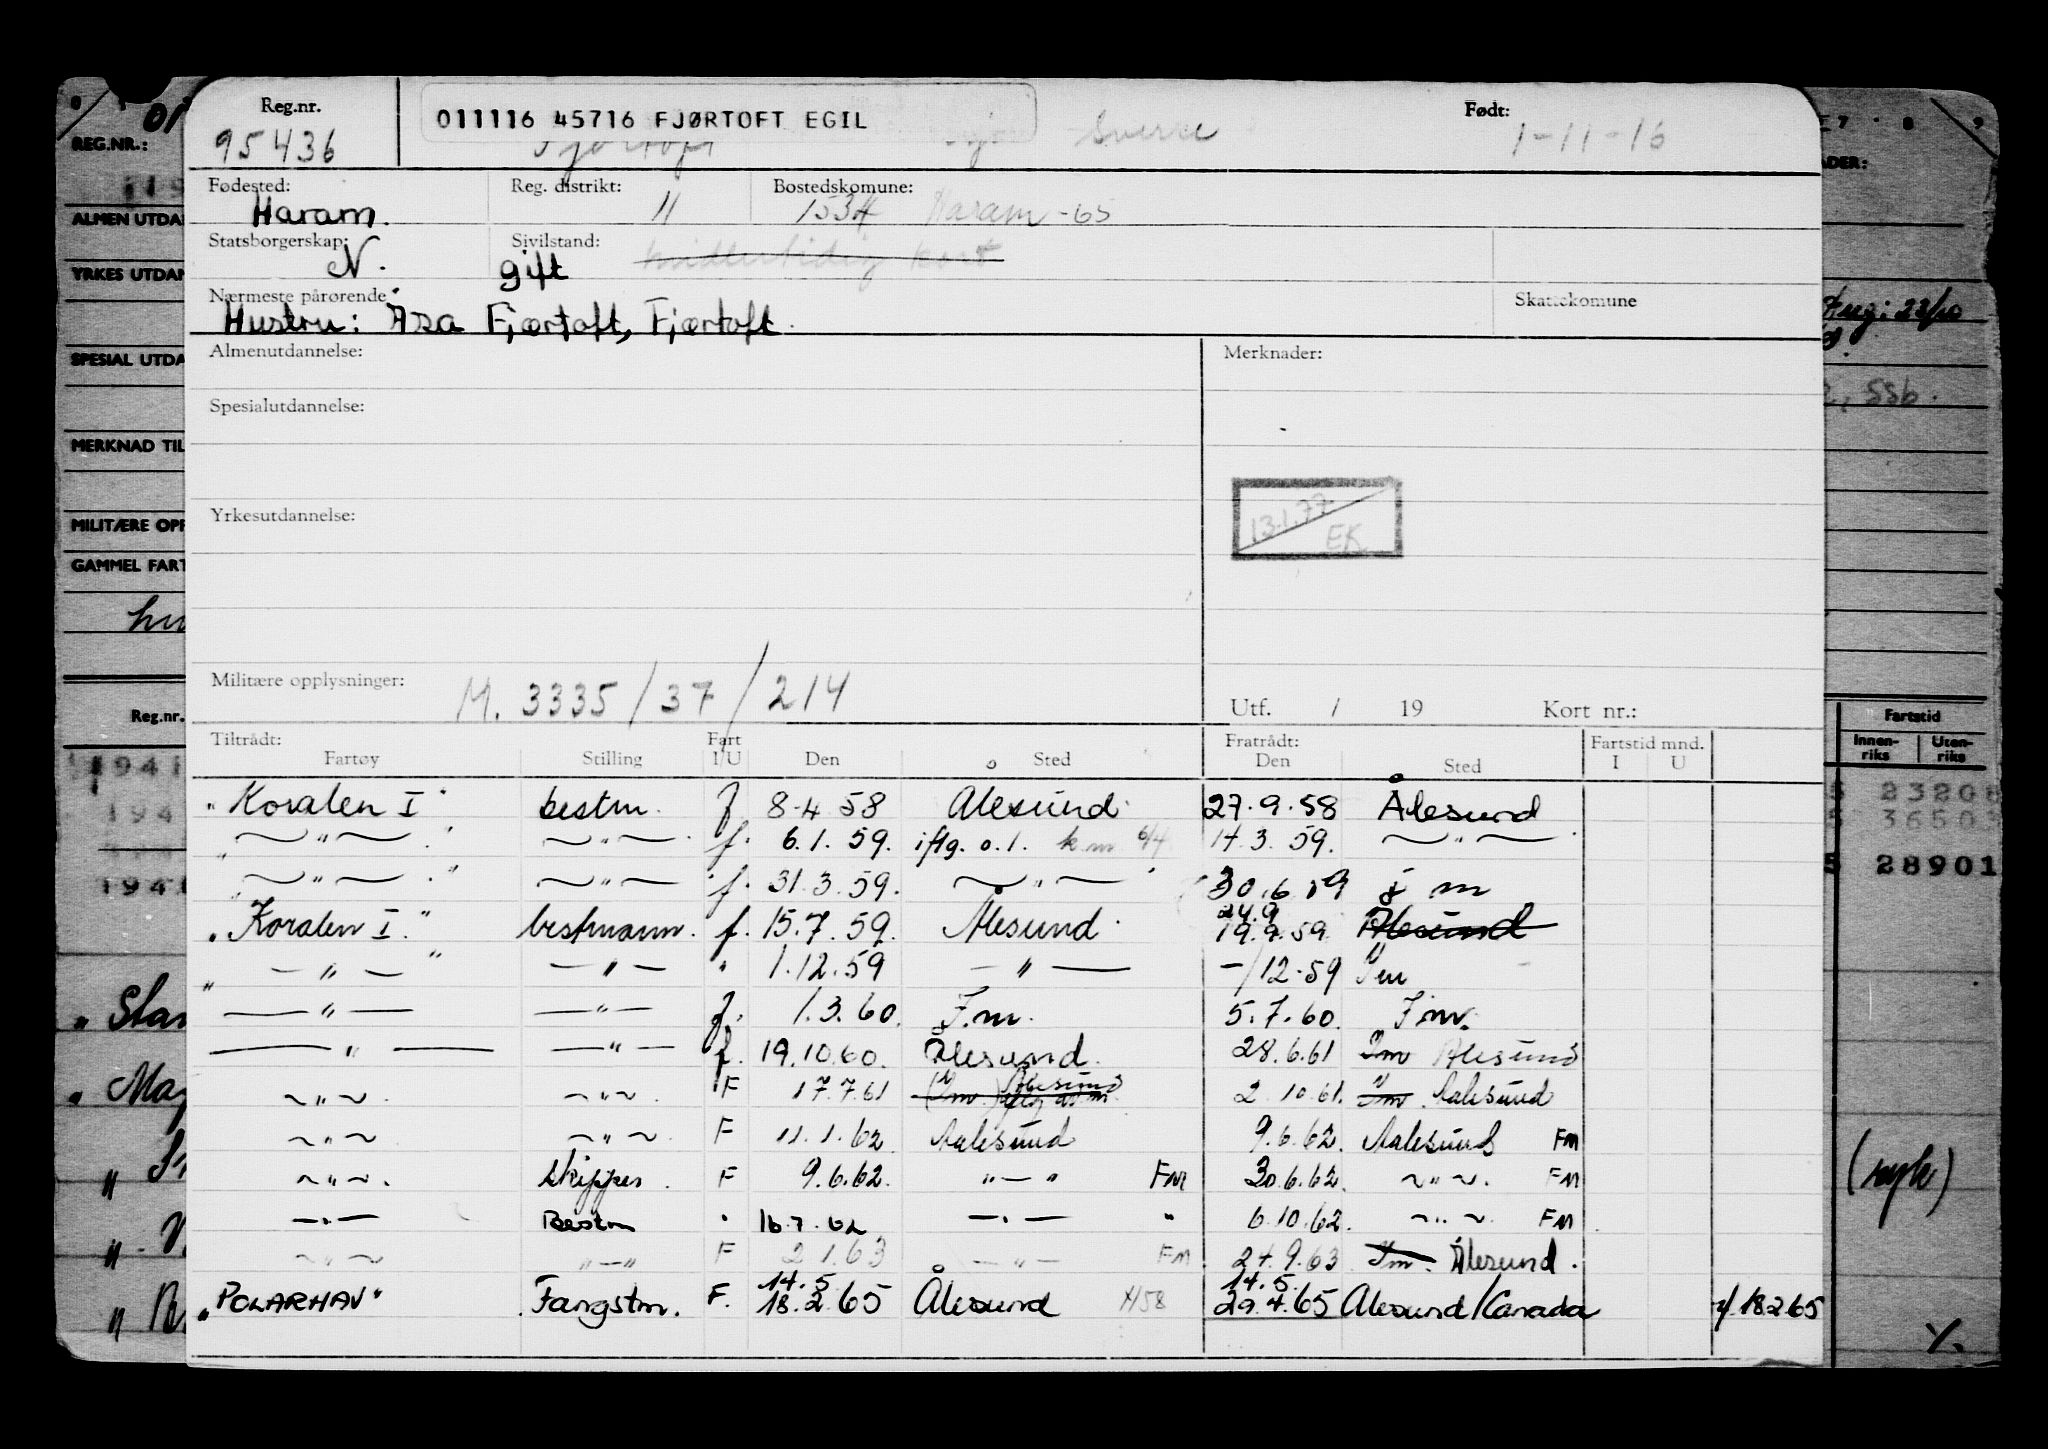 Reg.nr. 95436
011116 45716 FJØRTOFT EGIL
Sverre
Født: 1-11-16
Fødested: Haram.
Reg. distrikt: 11
Bostedskomune: 1534 Haram -65
Statsborgerskap: N.
Sivilstand: gift midlertidig kort
Nærmeste pårørende: Hustru: Åsa Fjørtoft, Fjørtoft.
Skattekomune
Almenutdannelse:
Merknader:
Spesialutdannelse:
13.1.77 EK
Yrkesutdannelse:
Militære opplysninger: M. 3335/37/214
Utf. / 19 Kort nr.:
Tiltrådt: Fart Fratrådt: Fartstid mnd.
Fartøy Stilling I/U Den Sted Den Sted I U
"Koralen I" bestm. f 8-4 58 Ålesund 27.9.58 Ålesund
" — " — " — " — f. 6.1. 59. iflg. o.l. k.m. 6/4 17.3.59. — " —
" — " — " — " — f. 31.3.59. — " — 30.6.59 i m
"Koralen I." bestmann. f. 15.7.59. Ålesund. 24.9 19.9.59 Ålesund
" — " — " — " — " 1.12.59 — " — -/12-59 Im
— " — — " — f. 1.3.60. F.m. 5.7.60. Fm.
— " — — " — f. 19.10.60. Ålesund. 28.6.61 Im Ålesund
~ " ~ ~ " ~ F 17.7.61 (Im) Ålesund 2.10.61. Im Aalesund
~ " ~ ~ " ~ F 11.1.62 Aalesund 9.6.62. Aalesund FM
~ " ~. Skipper F 9.6.62. " — " FM 30.6.62. ~ " ~. FM
— " — Bestm " 16.7.62 — " — " 6.10.62. ~ " ~ FM
~ " ~ " — " F 2.1.63 — " — FM 27.9.63 Im. Ålesund.
14.5. 14.5.
"POLARHAV" Fangstm. F. 18.2.65 Ålesund 29.4.65 Ålesund/Canada 18265
REG.NR.:
ALMEN UTDA
YRKES UTDAN
SPESIAL UTDA
MERKNAD TIL
MILITÆRE OPP
GAMMEL FART
Reg.nr.
1941
194
1941
ADER:
22/10
, SSB.
Fartstid
Innen-riks Uten-riks
23208
36503
28901